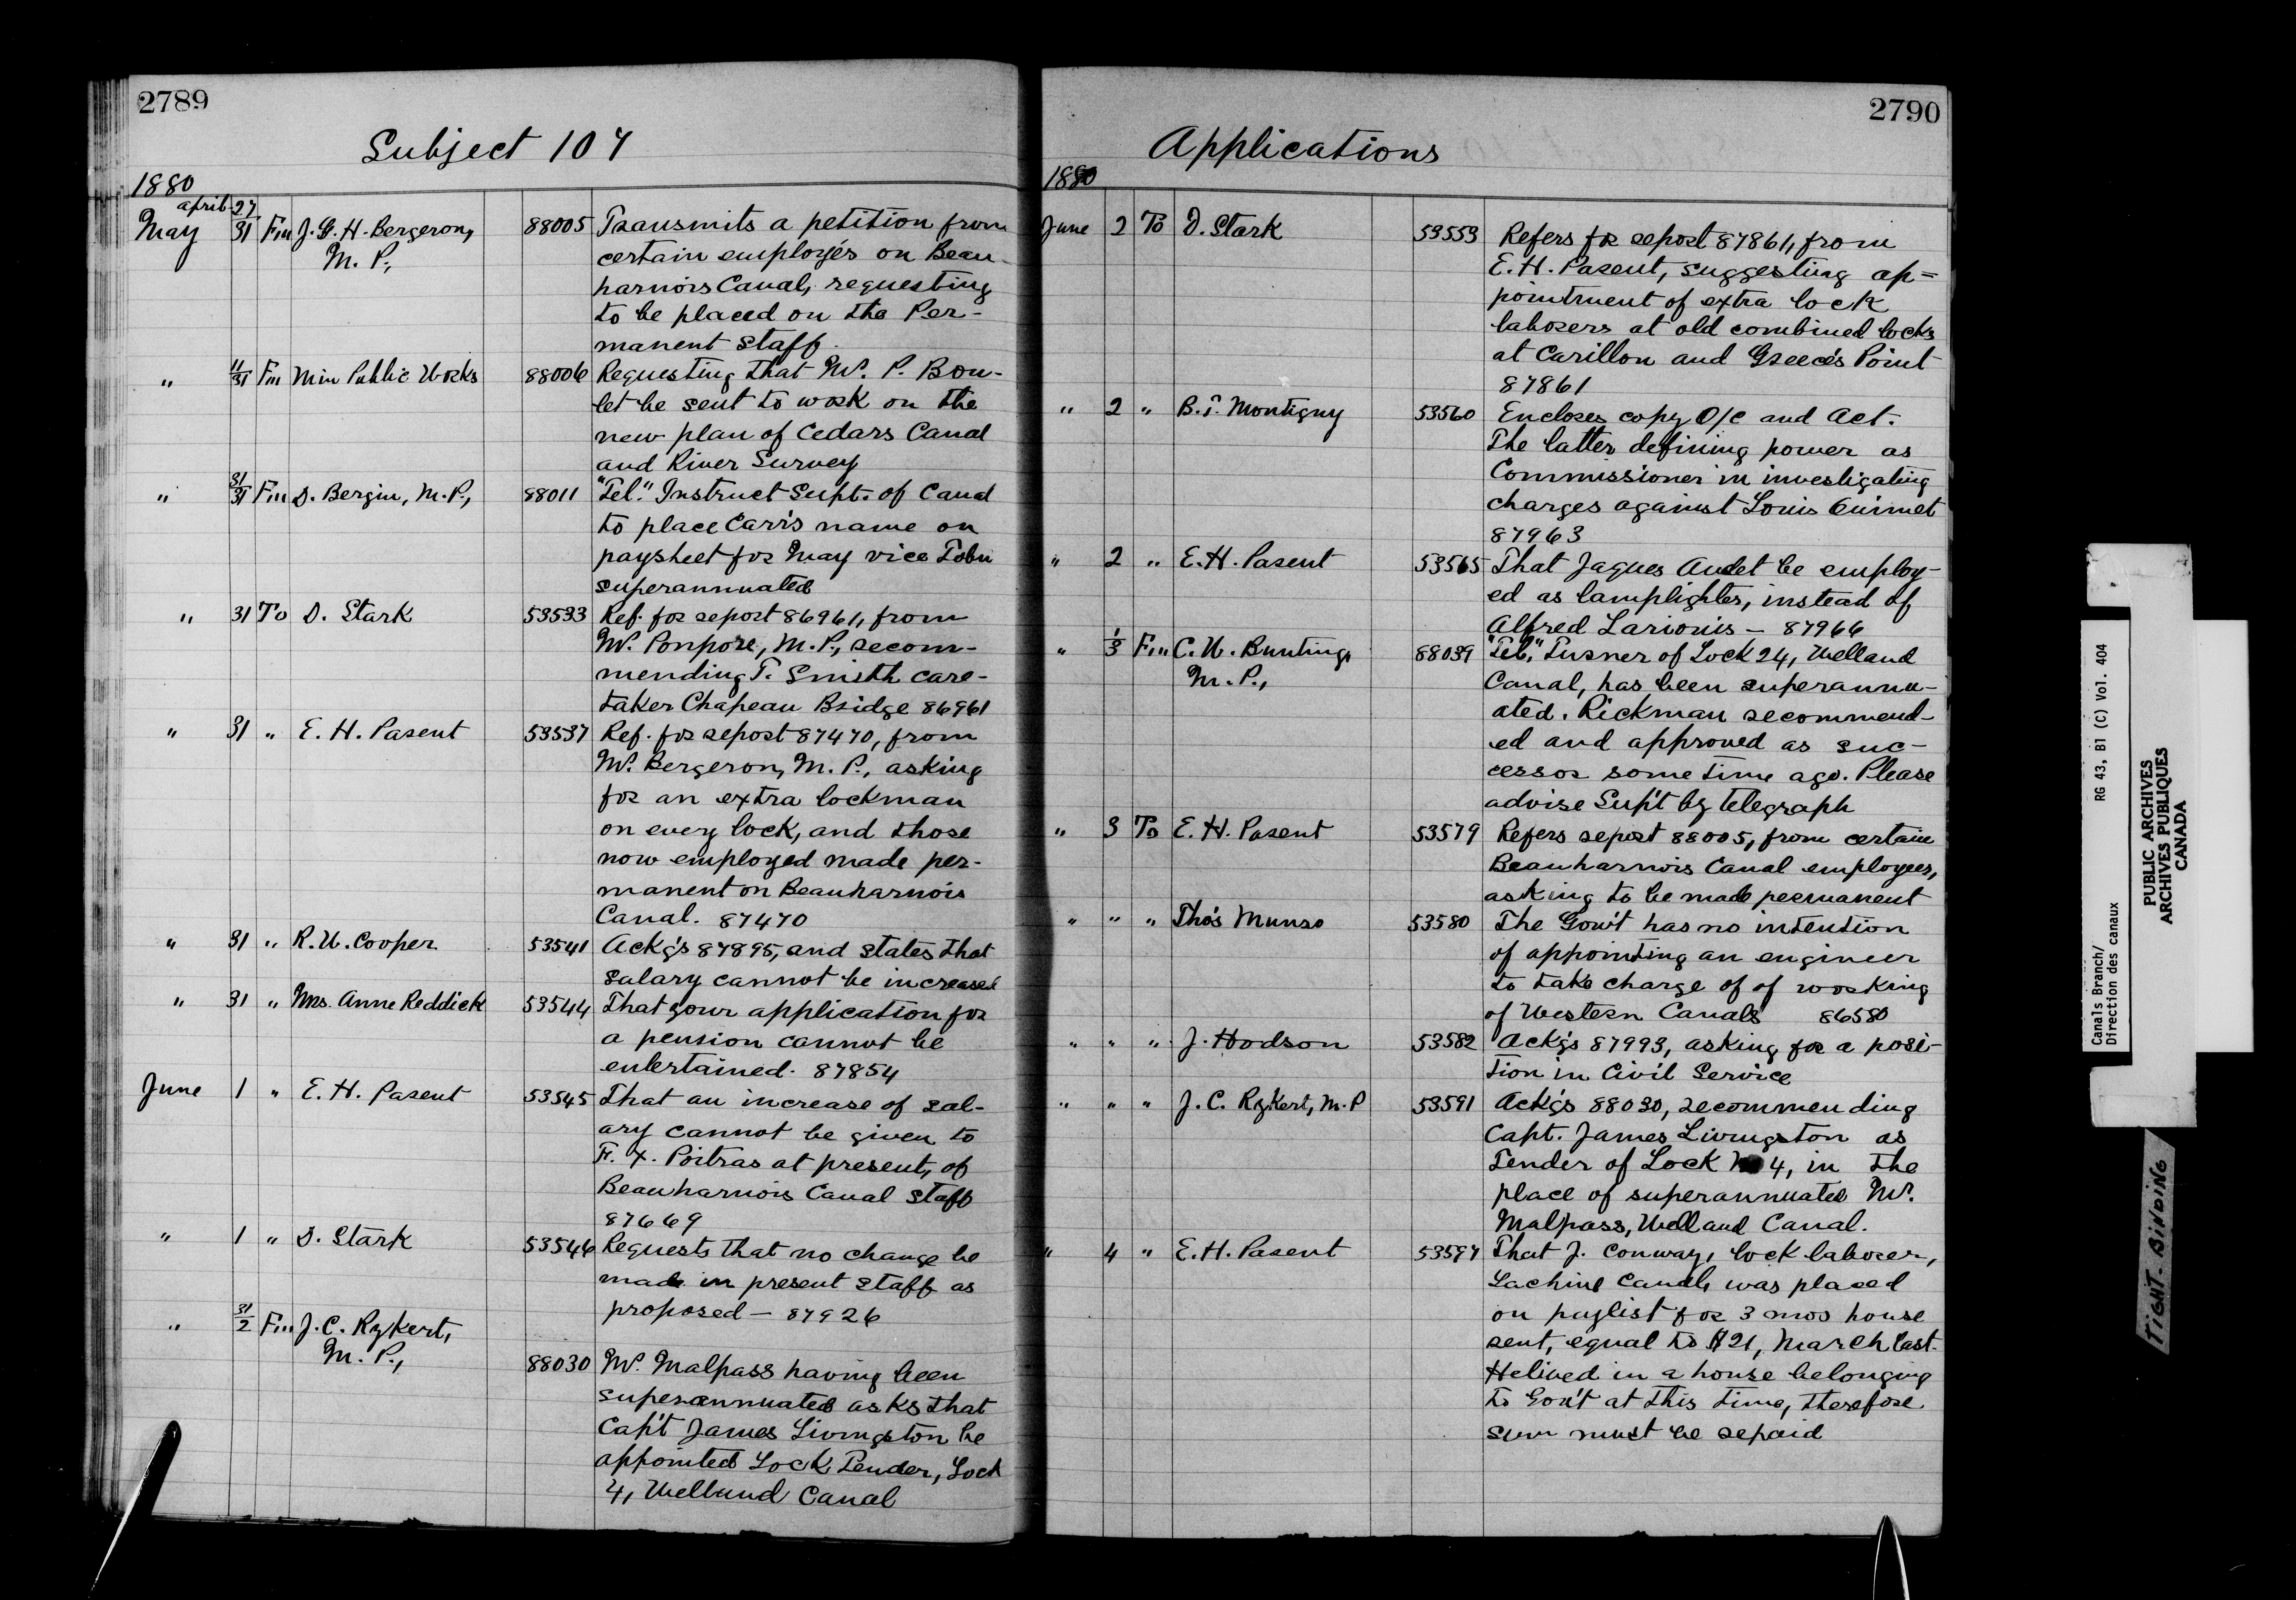 2789
Subject 107
1880
April 27
May 31 Fm J. G. H. Bergeron, 88005 Transmits a petition from
M. P., certain employés on Beau-
harnois Canal, requesting
to be placed on the Per-
manent Staff.
" 11/31 Fm Min Public Works 88006 Requesting that Mr. P. Bou-
let be sent to work on the
new plan of Cedars Canal
and River Survey
" 31/31 Fm D. Bergin, M.P., 88011 "Tel." Instruct Supt. of Canal
to place Carr's name on
paysheet for May vice Tobin
superannuated
" 31 To D. Stark 53533 Ref. for report 86961, from
Mr. Ponpore, M.P., recom-
mending T. Smith care-
taker Chapeau Bridge 86961
" 31 " E. H. Parent 53537 Ref. for report 87470, from
Mr. Bergeron, M. P., asking
for an extra lockman
on every lock, and those
now employed made per-
manent on Beauharnois
Canal. 87470
" 31 " R. W. Cooper 53541 Ackg's 87895, and states that
salary cannot be increased
" 31 " Mrs. Anne Reddick 53544 That your application for
a pension cannot be
entertained. 87854
June 1 " E. H. Parent 53545 That an increase of sal-
ary cannot be given to
F. X. Poitras at present, of
Beauharnois Canal Staff
87669
" 1 " D. Stark 53546 Requests that no change be
made in present staff as
proposed - 87926
" 31/2 Fm J. C. Rykert,
M. P., 88030 Mr. Malpass having been
superannuated asks that
Cap't James Livingston be
appointed Lock Tender, Lock
4, Welland Canal
2790
Applications
1880
June 2 To D. Stark 53553 Refers for report 87861, from
E. H. Parent, suggesting ap=
pointment of extra lock
laborers at old combined locks
at Carillon and Greece's Point
87861
" 2 " B. T. Montigny 53560 Encloses copy O/C and Act.
The latter defining power as
Commissioner in investigating
charges against Louis Ouimet
87963
" 2 " E. H. Parent 53565 That Jaques Audet be employ-
ed as lamplighter, instead of
Alfred Larionis - 87966
" 1/3 Fm C. W. Bunting, 88039 "Tel," Turner of Lock 24, Welland
M. P., Canal, has been superannu-
ated. Rickman recommend-
ed and approved as suc-
cessor some time ago. Please
advise Sup't by telegraph
" 3 To E. H. Parent 53579 Refers report 88005, from certain
Beauharnois Canal employees,
asking to be made permanent
" " " Tho's Munro 53580 The Gov't has no intention
of appointing an engineer
to take charge of of working
of Western Canals 86580
" " " J. Hodson 53582 Ackg's 87993, asking for a posi-
tion in Civil Service
" " " J. C. Rykert, M. P 53591 Ackg's 88030, recommending
Capt. James Livingston as
Tender of Lock No 4, in the
place of superannuated Mr.
Malpass, Welland Canal.
" 4 " E. H. Parent 53597 That J. Conway, lock laborer,
Lachine Canal, was placed
on paylist for 3 mos house
rent, equal to $21, March last.
He lived in a house belonging
to Gov't at this time, therefore
sum must be repaid
Canals Branch/ RG 43, B1 (C) Vol. 404
Direction des canaux
PUBLIC ARCHIVES
ARCHIVES PUBLIQUES
CANADA
TIGHT. BINDING